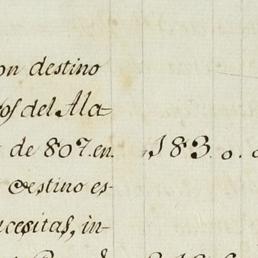 on destino
os del Ala
de 807. en. ,183. o.
destino es-
necesitas, in-